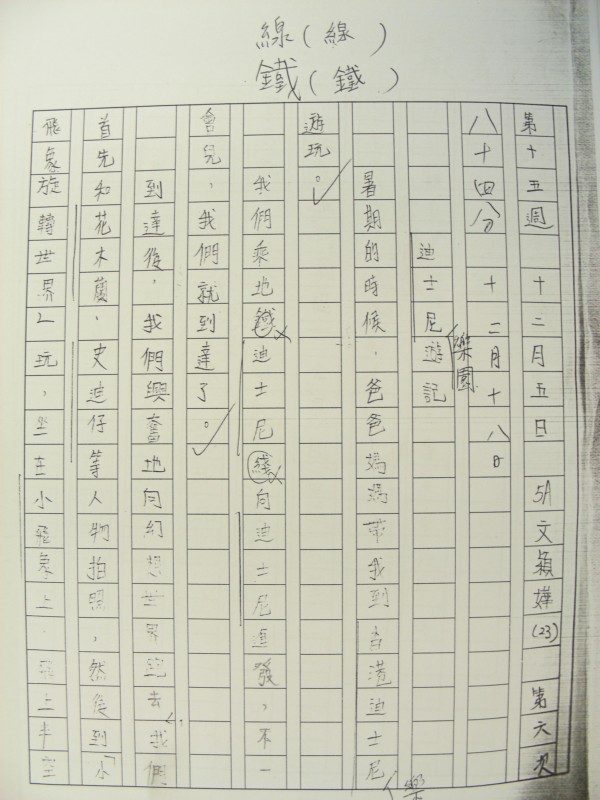 線（線）
鐵（鐵）
第十五週 十二月五日 5A 文穎嬅 (23) 第六次
八十四分 十二月十八日
迪士尼遊記
樂園
暑期的時候，爸爸媽媽帶我到香港迪士尼
樂
遊玩。
我們乘地鐵迪士尼綫向迪士尼進發，不一
會兒，我們就到達了。
到達後，我們興奮地向幻想世界跑去，我們
首先和花木蘭、史迪仔等人物拍照，然後到「小
飛象旋轉世界」玩，坐在小飛象上，飛上半空